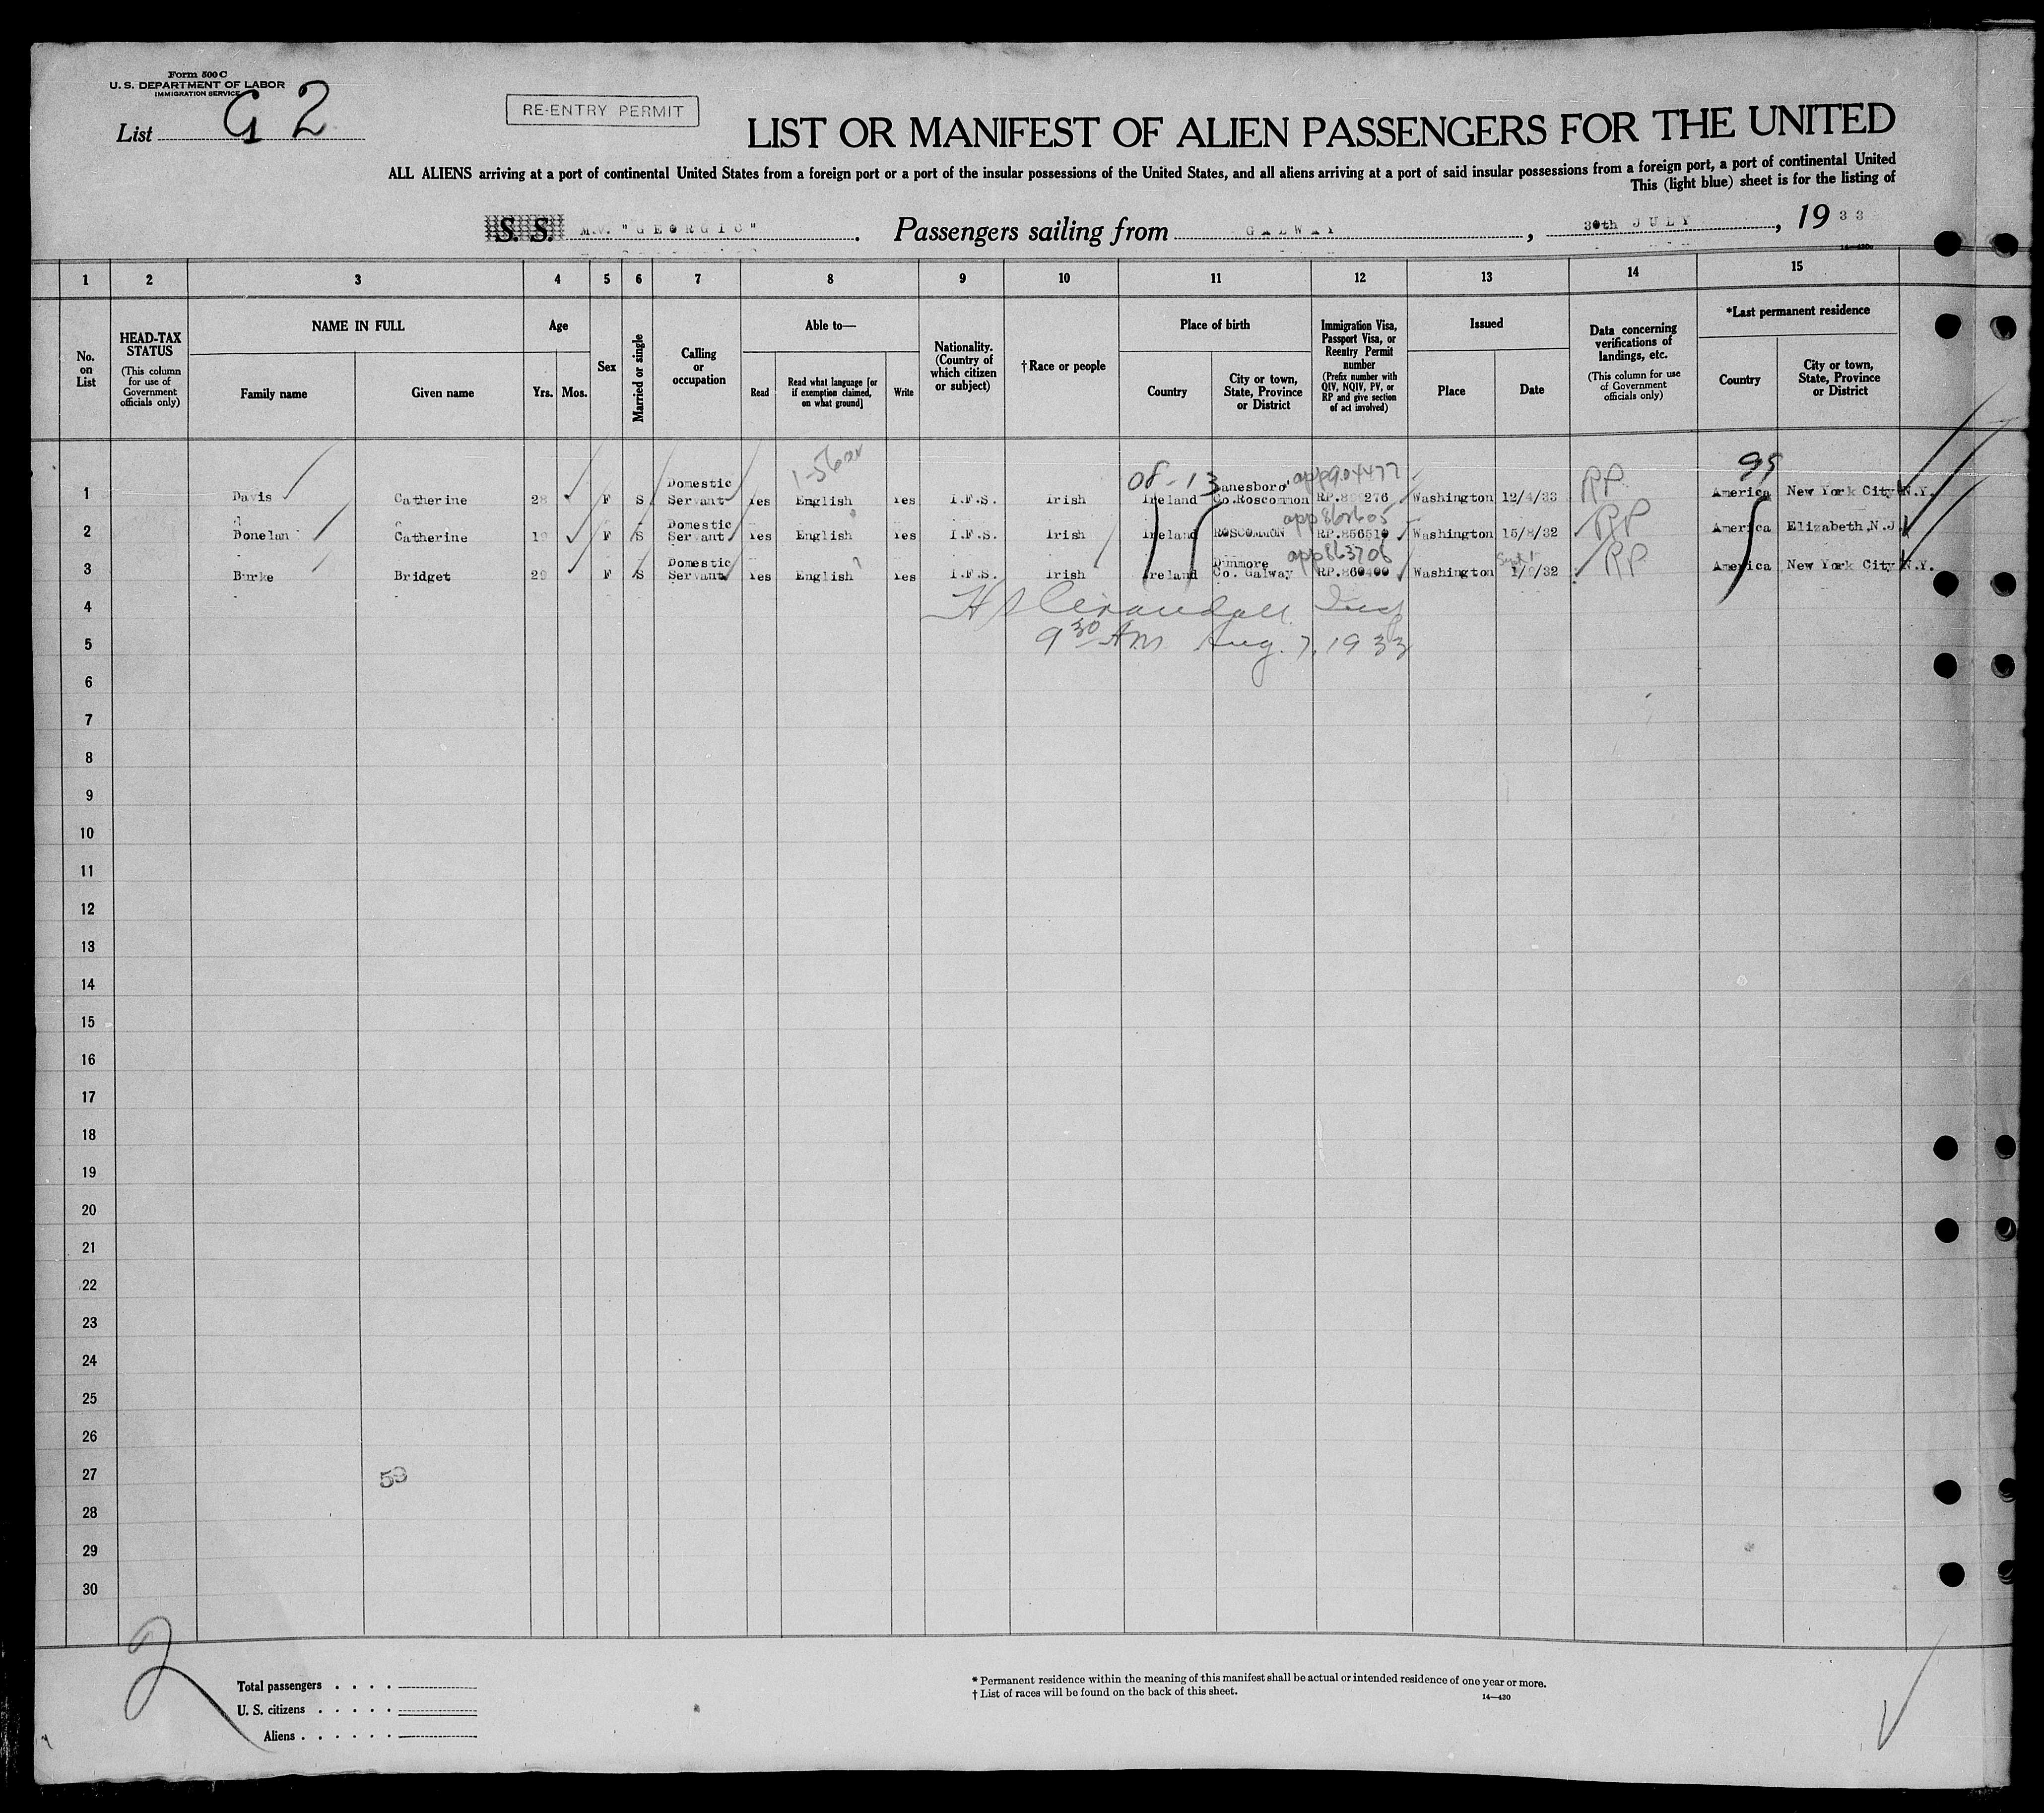 Form 500 C
U. S. DEPARTMENT OF LABOR
IMMIGRATION SERVICE
List G 2
RE-ENTRY PERMIT
LIST OR MANIFEST OF ALIEN PASSENGERS FOR THE UNITED
ALL ALIENS arriving at a port of continental United States from a foreign port or a port of the insular possessions of the United States, and all aliens arriving at a port of said insular possessions from a foreign port, a port of continental United
This (light blue) sheet is for the listing of
S. S. M.V. "GEORGIC". Passengers sailing from GALWAY, 30th JULY, 1933
14—430
1 2 3 4 5 6 7 8 9 10 11 12 13 14 15
No. on List
HEAD-TAX STATUS
(This column for use of Government officials only)
NAME IN FULL
Family name
Given name
Age
Yrs. Mos.
Sex
Married or single
Calling or occupation
Able to—
Read
Read what language [or if exemption claimed, on what ground]
Write
Nationality. (Country of which citizen or subject)
† Race or people
Place of birth
Country
City or town, State, Province or District
Immigration Visa, Passport Visa, or Reentry Permit number
(Prefix number with QIV, NQIV, PV, or RP and give section of act involved)
Issued
Place
Date
Data concerning verifications of landings, etc.
(This column for use of Government officials only)
*Last permanent residence
Country
City or town, State, Province or District
08-13 app904477 RP 95
1 Davis Catherine 28 F S Domestic Servant Yes English Yes I.F.S. Irish Ireland Lanesboro' Co.Roscommon 276 Washington 12/4/33 America New York City N.Y.
app862605 RP
2 Donelan Catherine F S Domestic Servant Yes English Yes I.F.S. Irish Ireland ROSCOMMON RP.856510 Washington 15/8/32 America Elizabeth,N.J.
app863706 Sept RP
3 Burke Bridget 29 F S Domestic Servant Yes English Yes I.F.S. Irish Ireland Dunmore Co. Galway RP.860400 Washington 1/9/32 America New York City N.Y.
4
5 9 30 AM Aug. 7, 1933
6
7
8
9
10
11
12
13
14
15
16
17
18
19
20
21
22
23
24
25
26
27
59
28
29
30
2
Total passengers
U. S. citizens
Aliens
* Permanent residence within the meaning of this manifest shall be actual or intended residence of one year or more.
† List of races will be found on the back of this sheet.
14—430